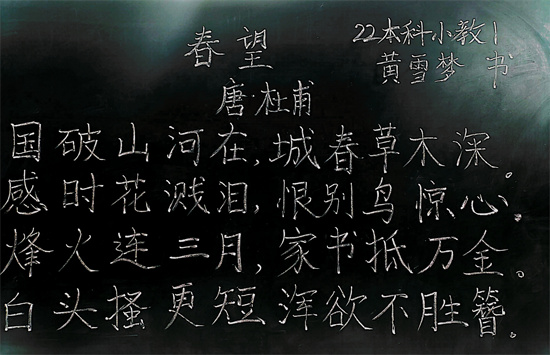 春望
22本科小教1
黄雪梦 书
唐·杜甫
国破山河在，城春草木深。
感时花溅泪，恨别鸟惊心。
烽火连三月，家书抵万金。
白头搔更短 浑欲不胜簪。